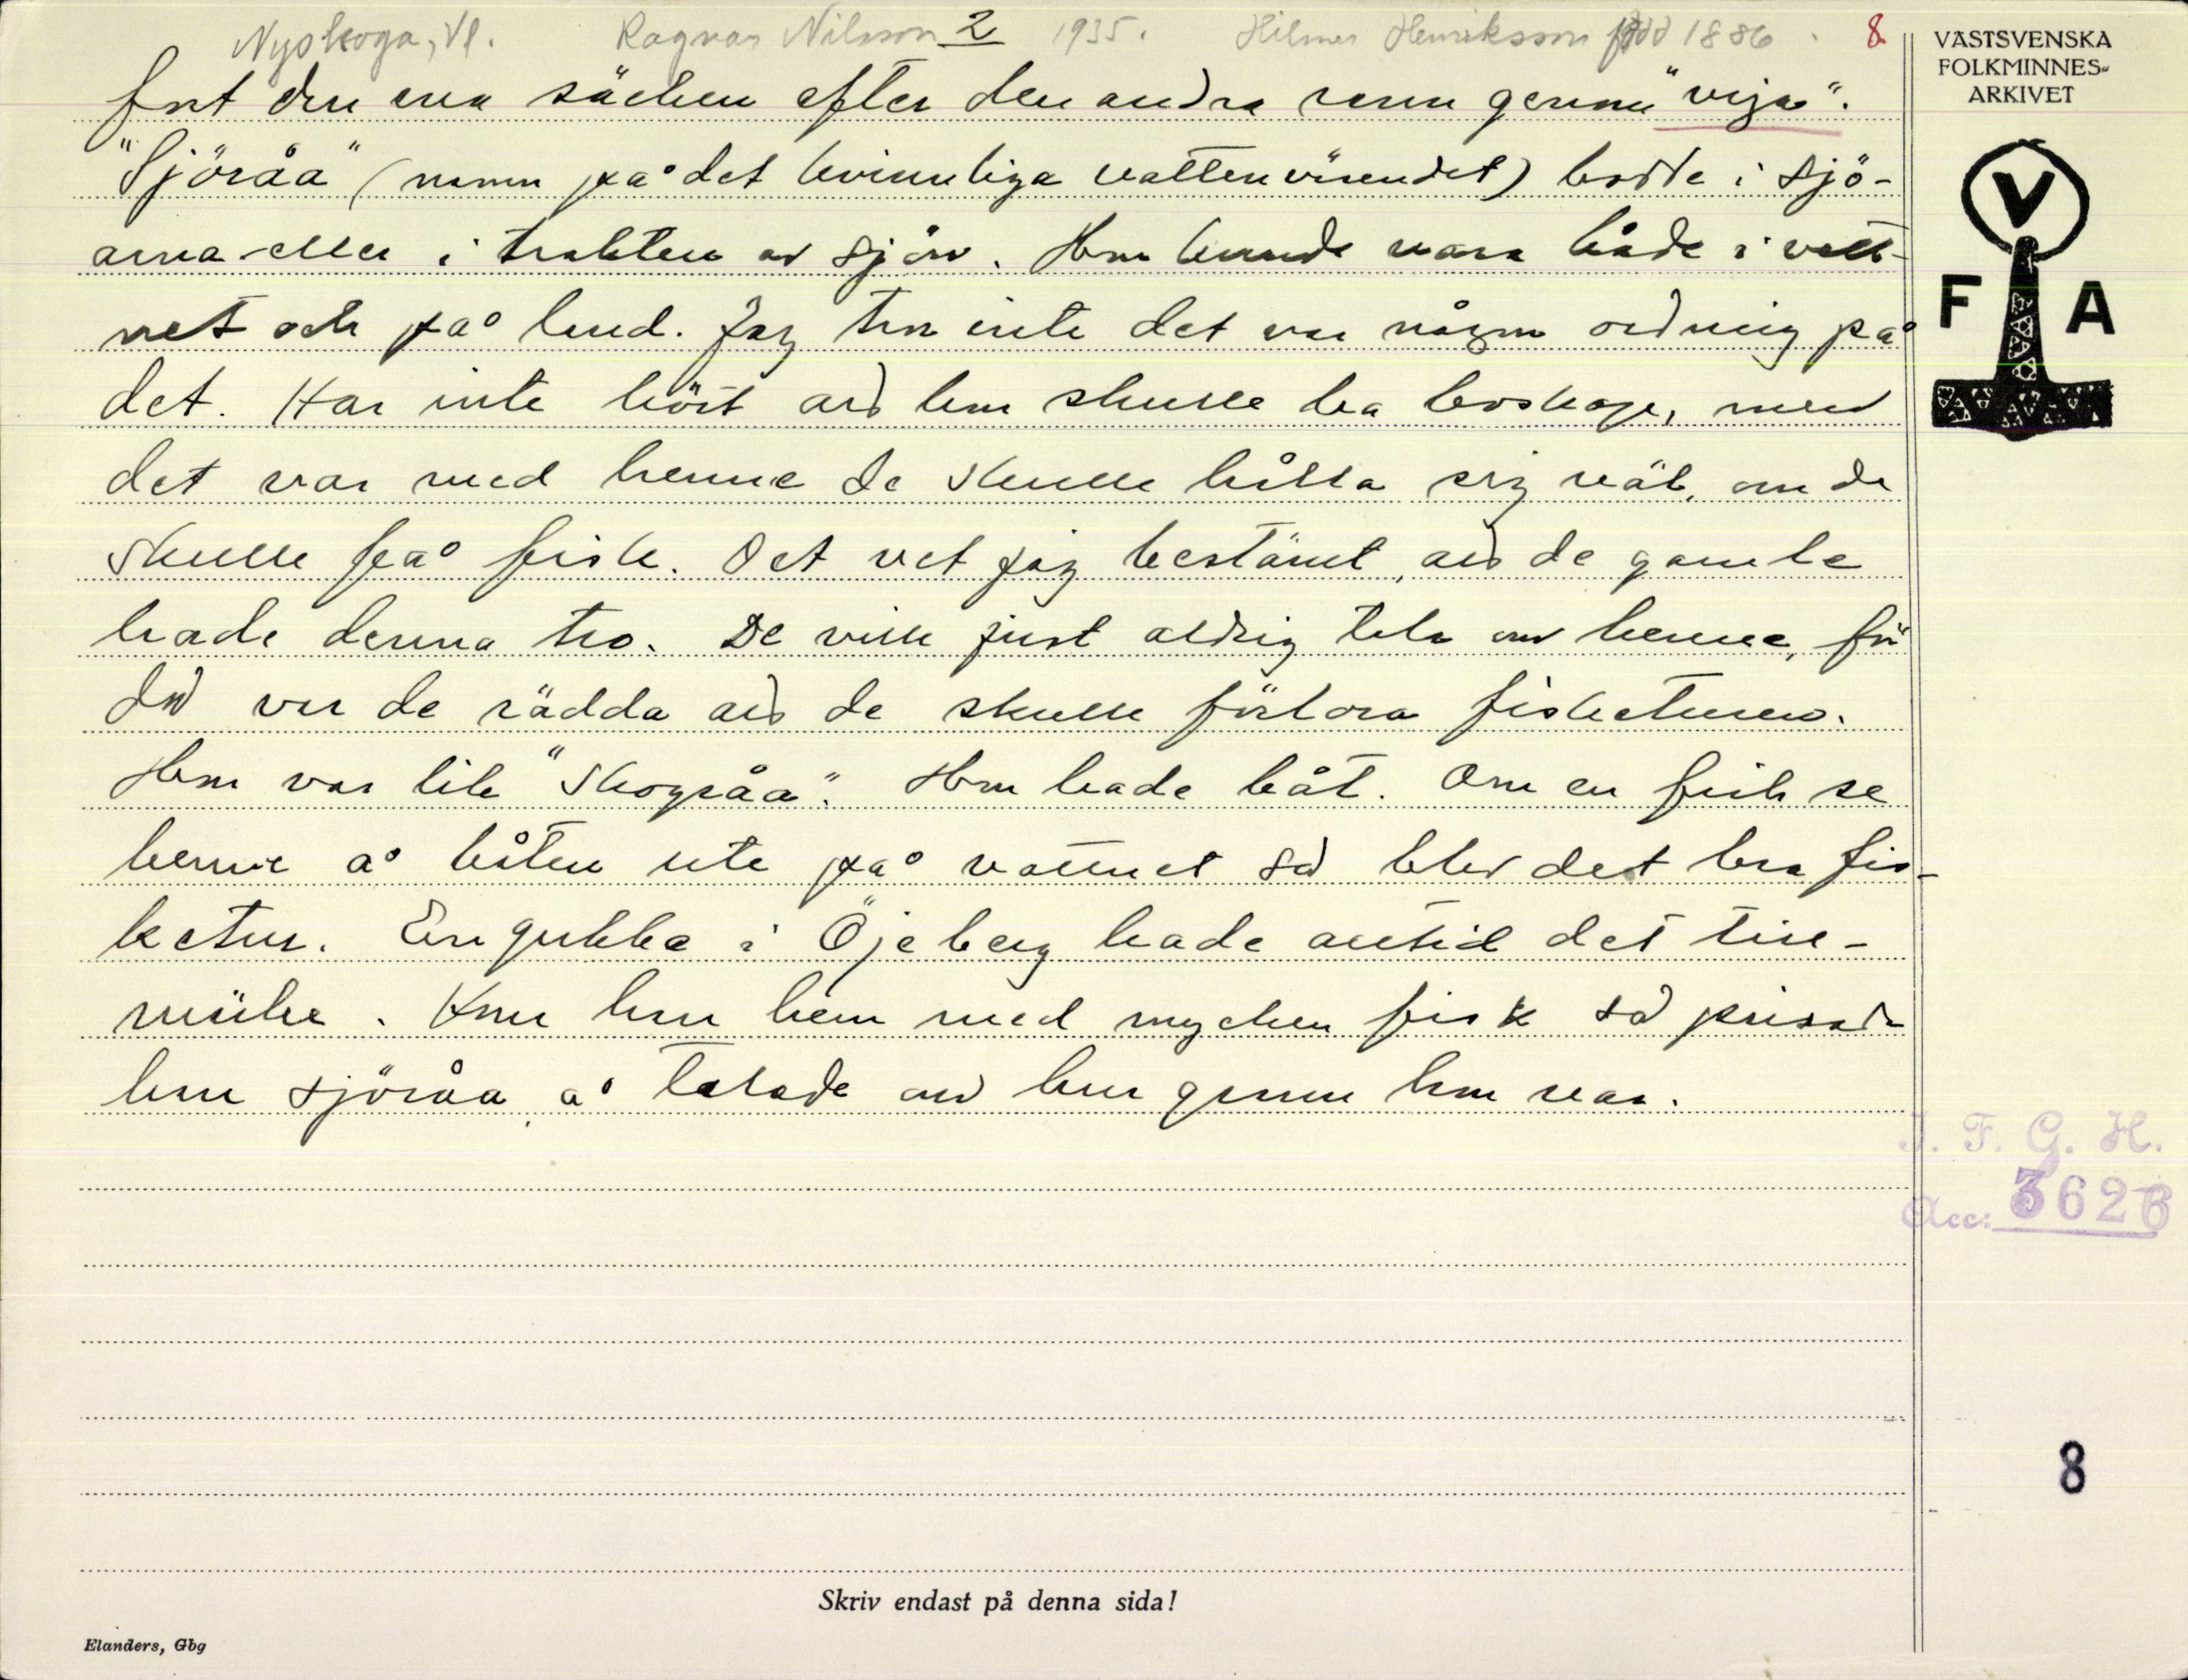 Nyskoga, Vl. Ragnar Nilsson 2 1935. Hilmer Henriksson född 1886. 8.
fort den ena säcken efter den andra rann genom "vija".
"Sjöråa" (namn på det kvinnliga vattenväsendet) bodde i sjö-
arna eller i trakten av sjön. Hon kunde vara både i vatt-
net och på land. Jag tror inte det var någon ordning på
det. Har inte hört att hon skulle ha boskap, men
det var med henne de skulle hålla sig väl, om de
skulle få fisk. Det vet jag bestämt, att de gamle
hade denna tro. De ville just aldrig tala om henne, för
då var de rädda att de skulle förlora fisketuren.
Hon var lik "Skogsråa". Hon hade båt. Om en fick se
henne å båten ute på vattnet så blev det bra fis-
ketur. En gubbe i Öjeberg hade alltid det
Kom han hem med mycken fisk så prisade
han sjöråa, å talade om hur grann hon var.
VÄSTSVENSKA
FOLKMINNES-
ARKIVET
V
F A
I. F. G. H.
Acc: 3626
8
Skriv endast på denna sida!
Elanders, Gbg